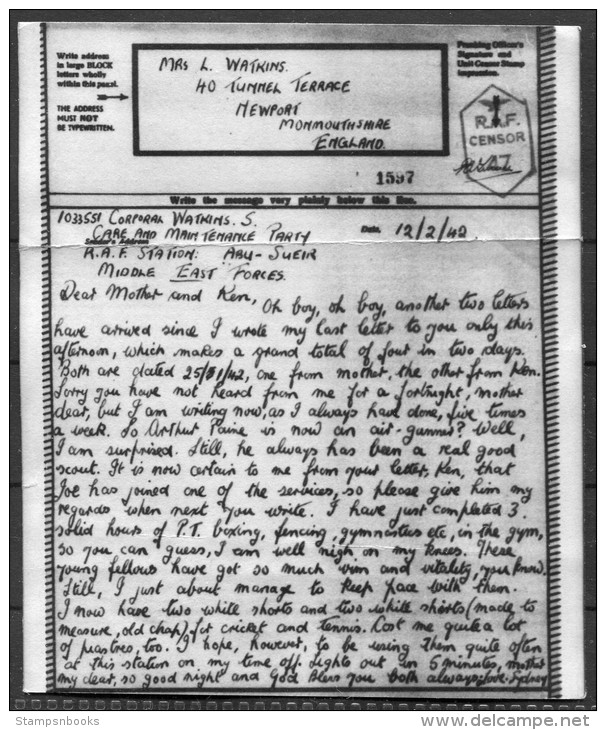 Write address
in large BLOCK
letters wholly
within this panel.
THE ADDRESS
MUST NOT
BE TYPEWRITTEN.
MRS L. WATKINS.
40 TUNNEL TERRACE
NEWPORT
MONMOUTHSHIRE
ENGLAND.
Franking Officer's
Signature and
Unit Censor Stamp
Impression.
R.A.F.
CENSOR
1597
Write the message very plainly below this line.
1033551 CORPORAL WATKINS. S.
CARE AND MAINTENANCE PARTY
Sender's Address
R.A.F. STATION: ABU-SUEIR
MIDDLE EAST FORCES.
Date 12/2/42
Dear Mother and Ken,
Oh boy, oh boy, another two letters
have arrived since I wrote my last letter to you only this
afternoon, which makes a grand total of four in two days.
Both are dated 25/1/42, one from mother, the other from Ken.
Sorry you have not heard from me for a fortnight, mother
dear, but I am writing now, as I always have done, five times
a week. So Arthur Paine is now an air-gunner? Well,
I am surprised. Still, he always has been a real good
scout. It is now certain to me from your letter, Ken, that
Joe has joined one of the services, so please give him my
regards when next you write. I have just completed 3
solid hours of P.T. boxing, fencing, gymnastics etc, in the gym,
so you can guess, I am well nigh on my knees. These
young fellows have got so much vim and vitality, you know.
Still, I just about manage to keep pace with them.
I now have two white shorts and two white shirts (made to
measure, old chap) for cricket and tennis. Cost me quite a lot
of piastres, too. I hope, however, to be using them quite often
at this station on my time off. Lights out in 5 minutes, mother
my dear, so good night and God Bless you both always. love. Sydney
Stampsnbooks
delcampe.net